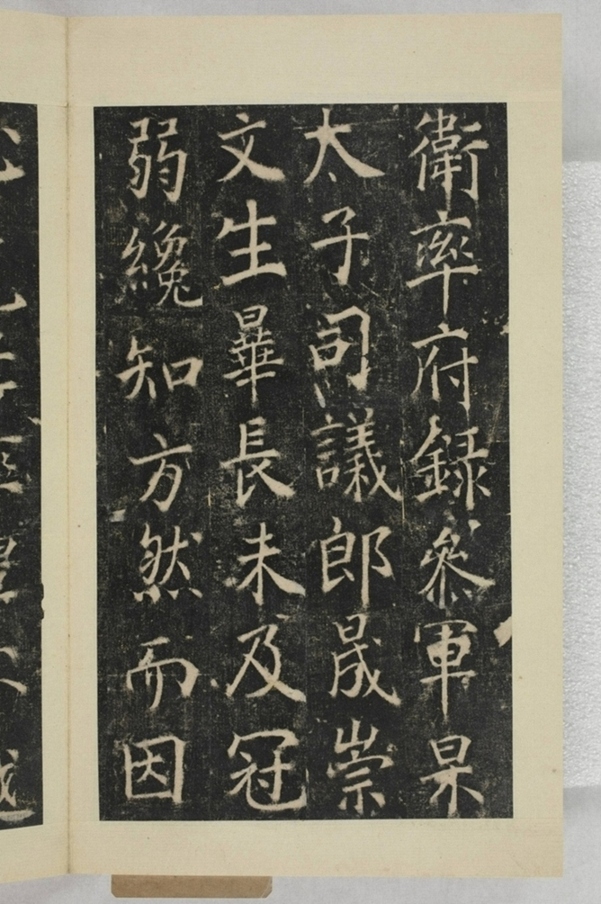 衛率府録叅軍杲
太子司議郎晟崇
文生曅長未及冠
弱纔知方然而因